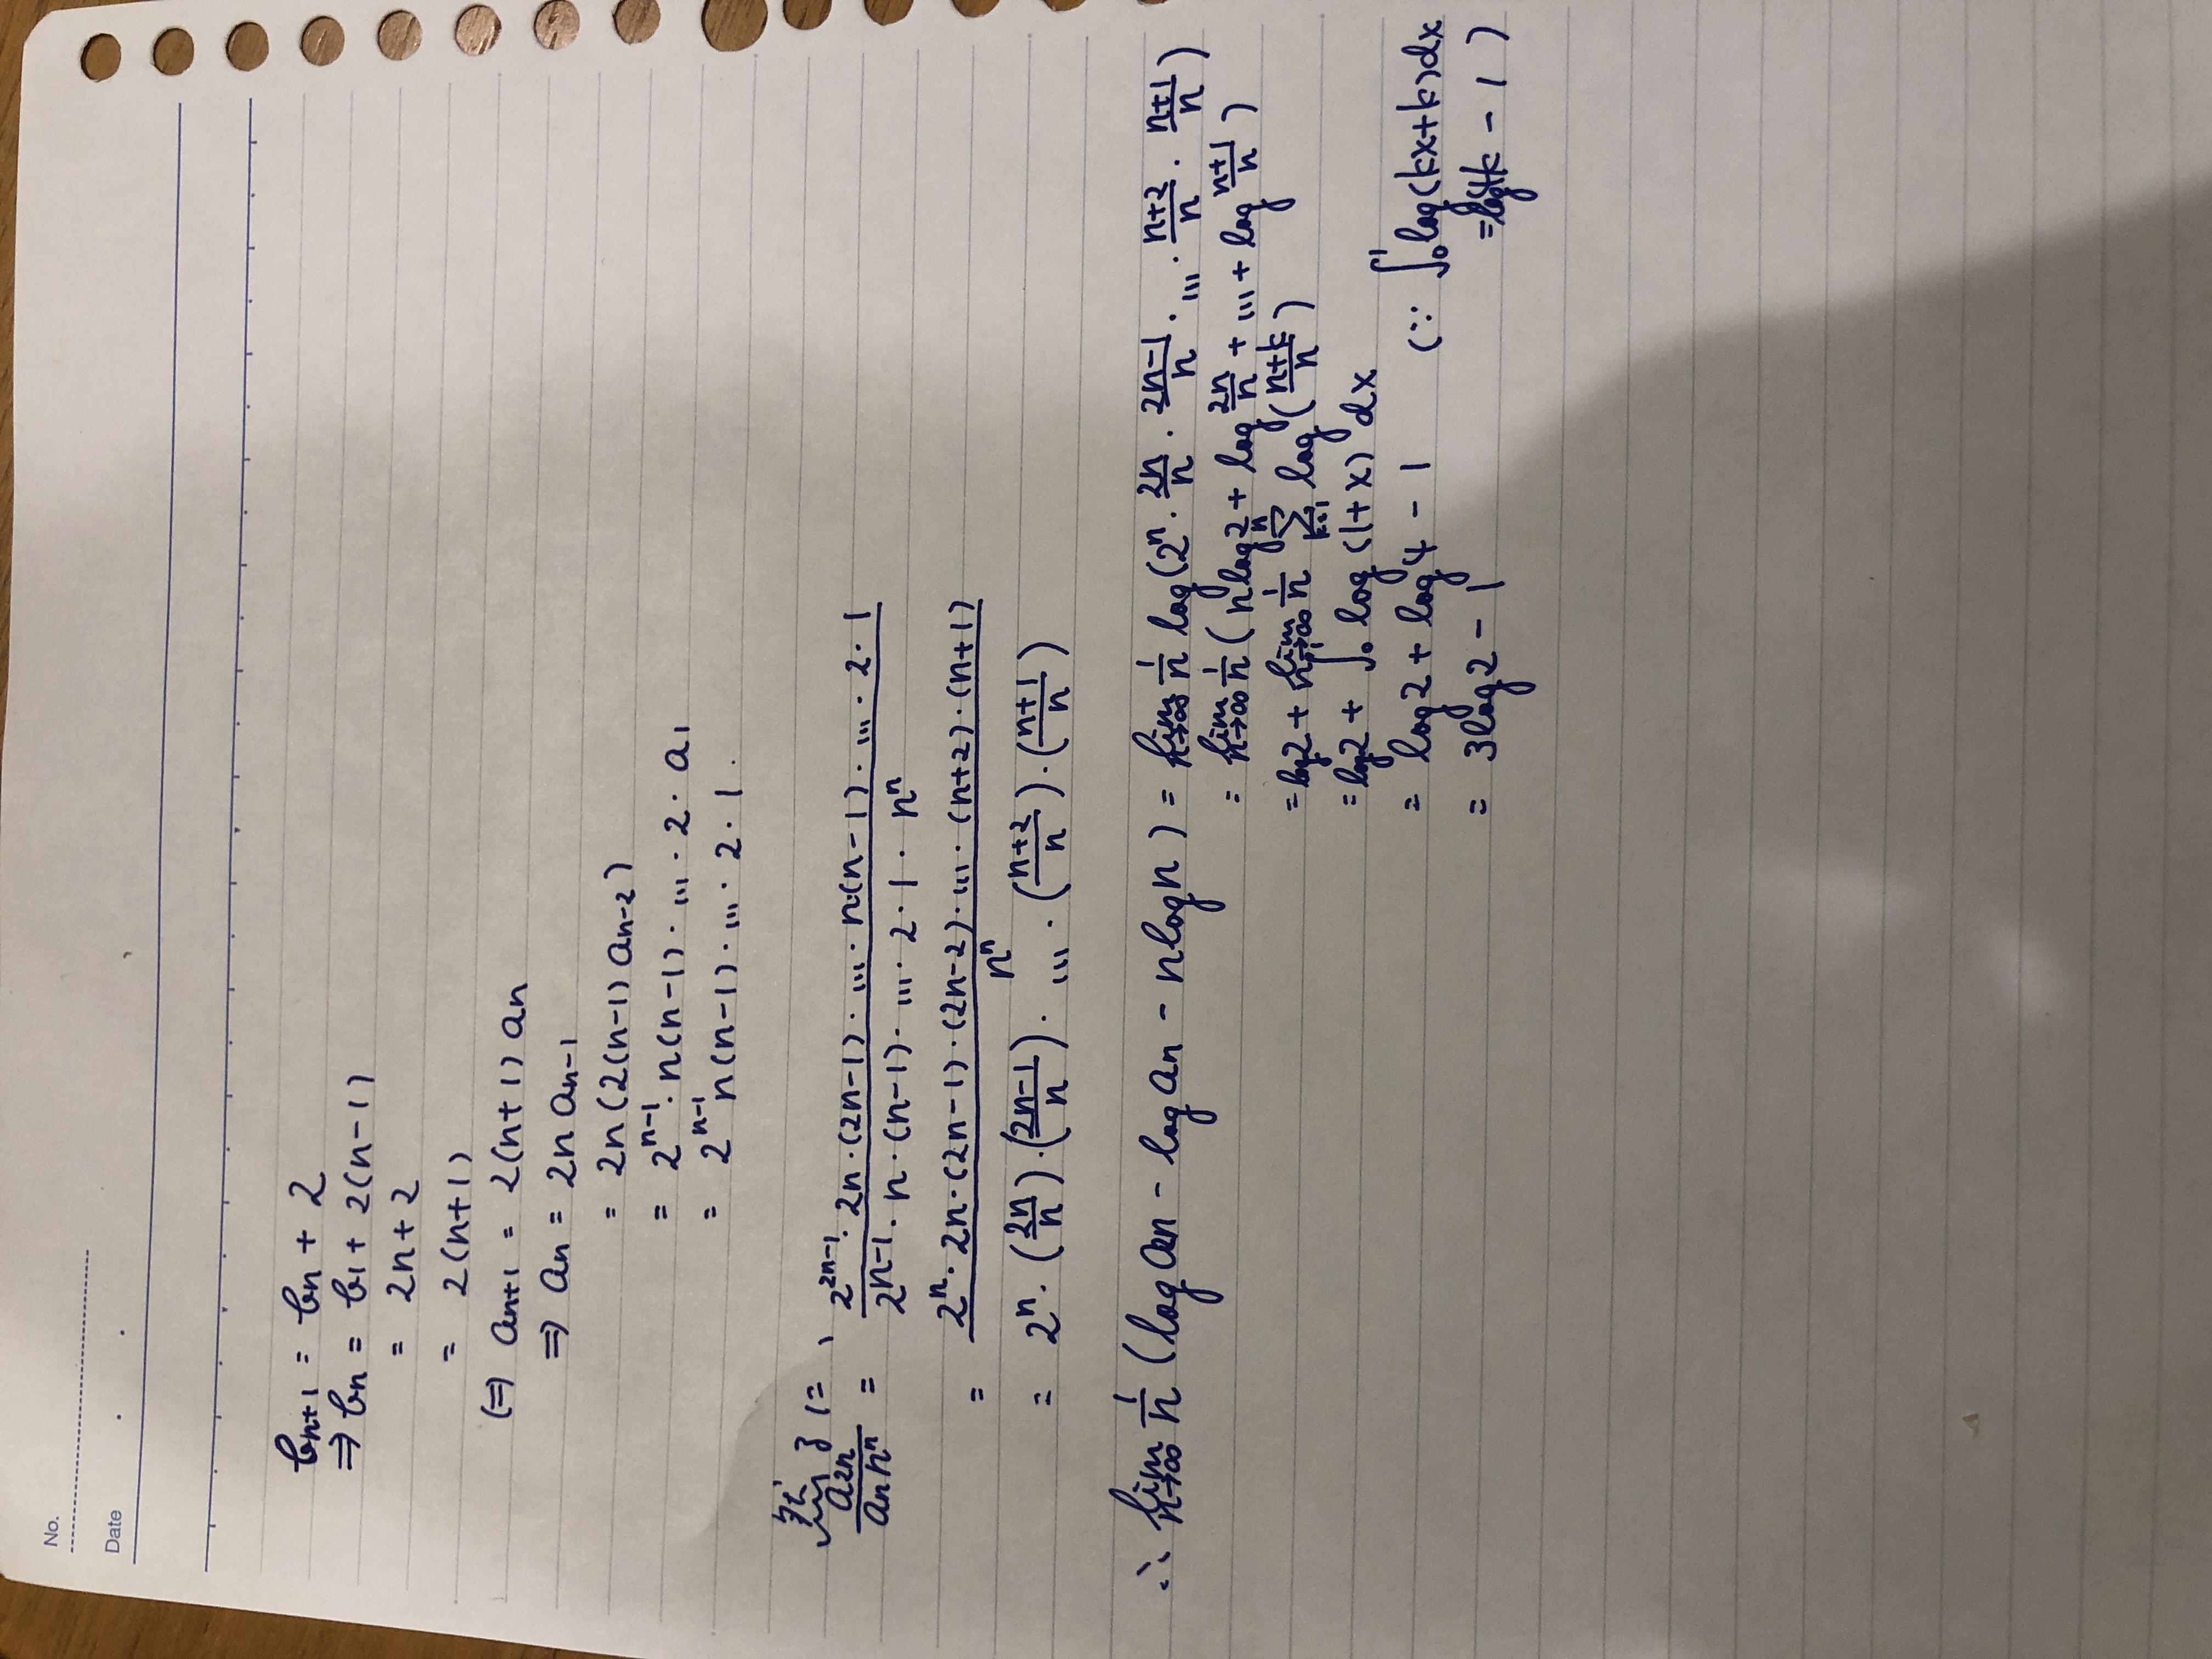 No.
Date
bn+1 = bn + 2
⇒ bn = b1 + 2(n-1)
= 2n+2
= 2(n+1)
(⇒) an+1 = 2(n+1) an
⇒ an = 2n an-1
= 2n(2(n-1) an-2)
= 2^{n-1}・n(n-1)・…・2・a1
= 2^{n-1} n(n-1)・…・2・1.
a2n/(an n^n) = (2^{2n-1}・2n・(2n-1)・…・n・(n-1)・…・2・1)/(2^{n-1}・n・(n-1)・…・2・1・n^n)
= (2^n・2n・(2n-1)・(2n-2)・…・(n+2)・(n+1))/n^n
= 2^n・(2n/n)・((2n-1)/n)・…・((n+2)/n)・((n+1)/n)
∴ lim_{n→∞} 1/n (log a2n - log an - n log n) = lim_{n→∞} 1/n log(2^n・2n/n・(2n-1)/n・…・(n+2)/n・(n+1)/n)
= lim_{n→∞} 1/n (n log2 + log 2n/n + … + log (n+1)/n)
= log2 + lim_{n→∞} 1/n Σ_{k=1}^{n} log((n+k)/n)
= log2 + ∫_0^1 log(1+x) dx
= log2 + log4 - 1 (∵ ∫_0^1 log(kx+k)dx
= 3log2 - 1 = log4k - 1)